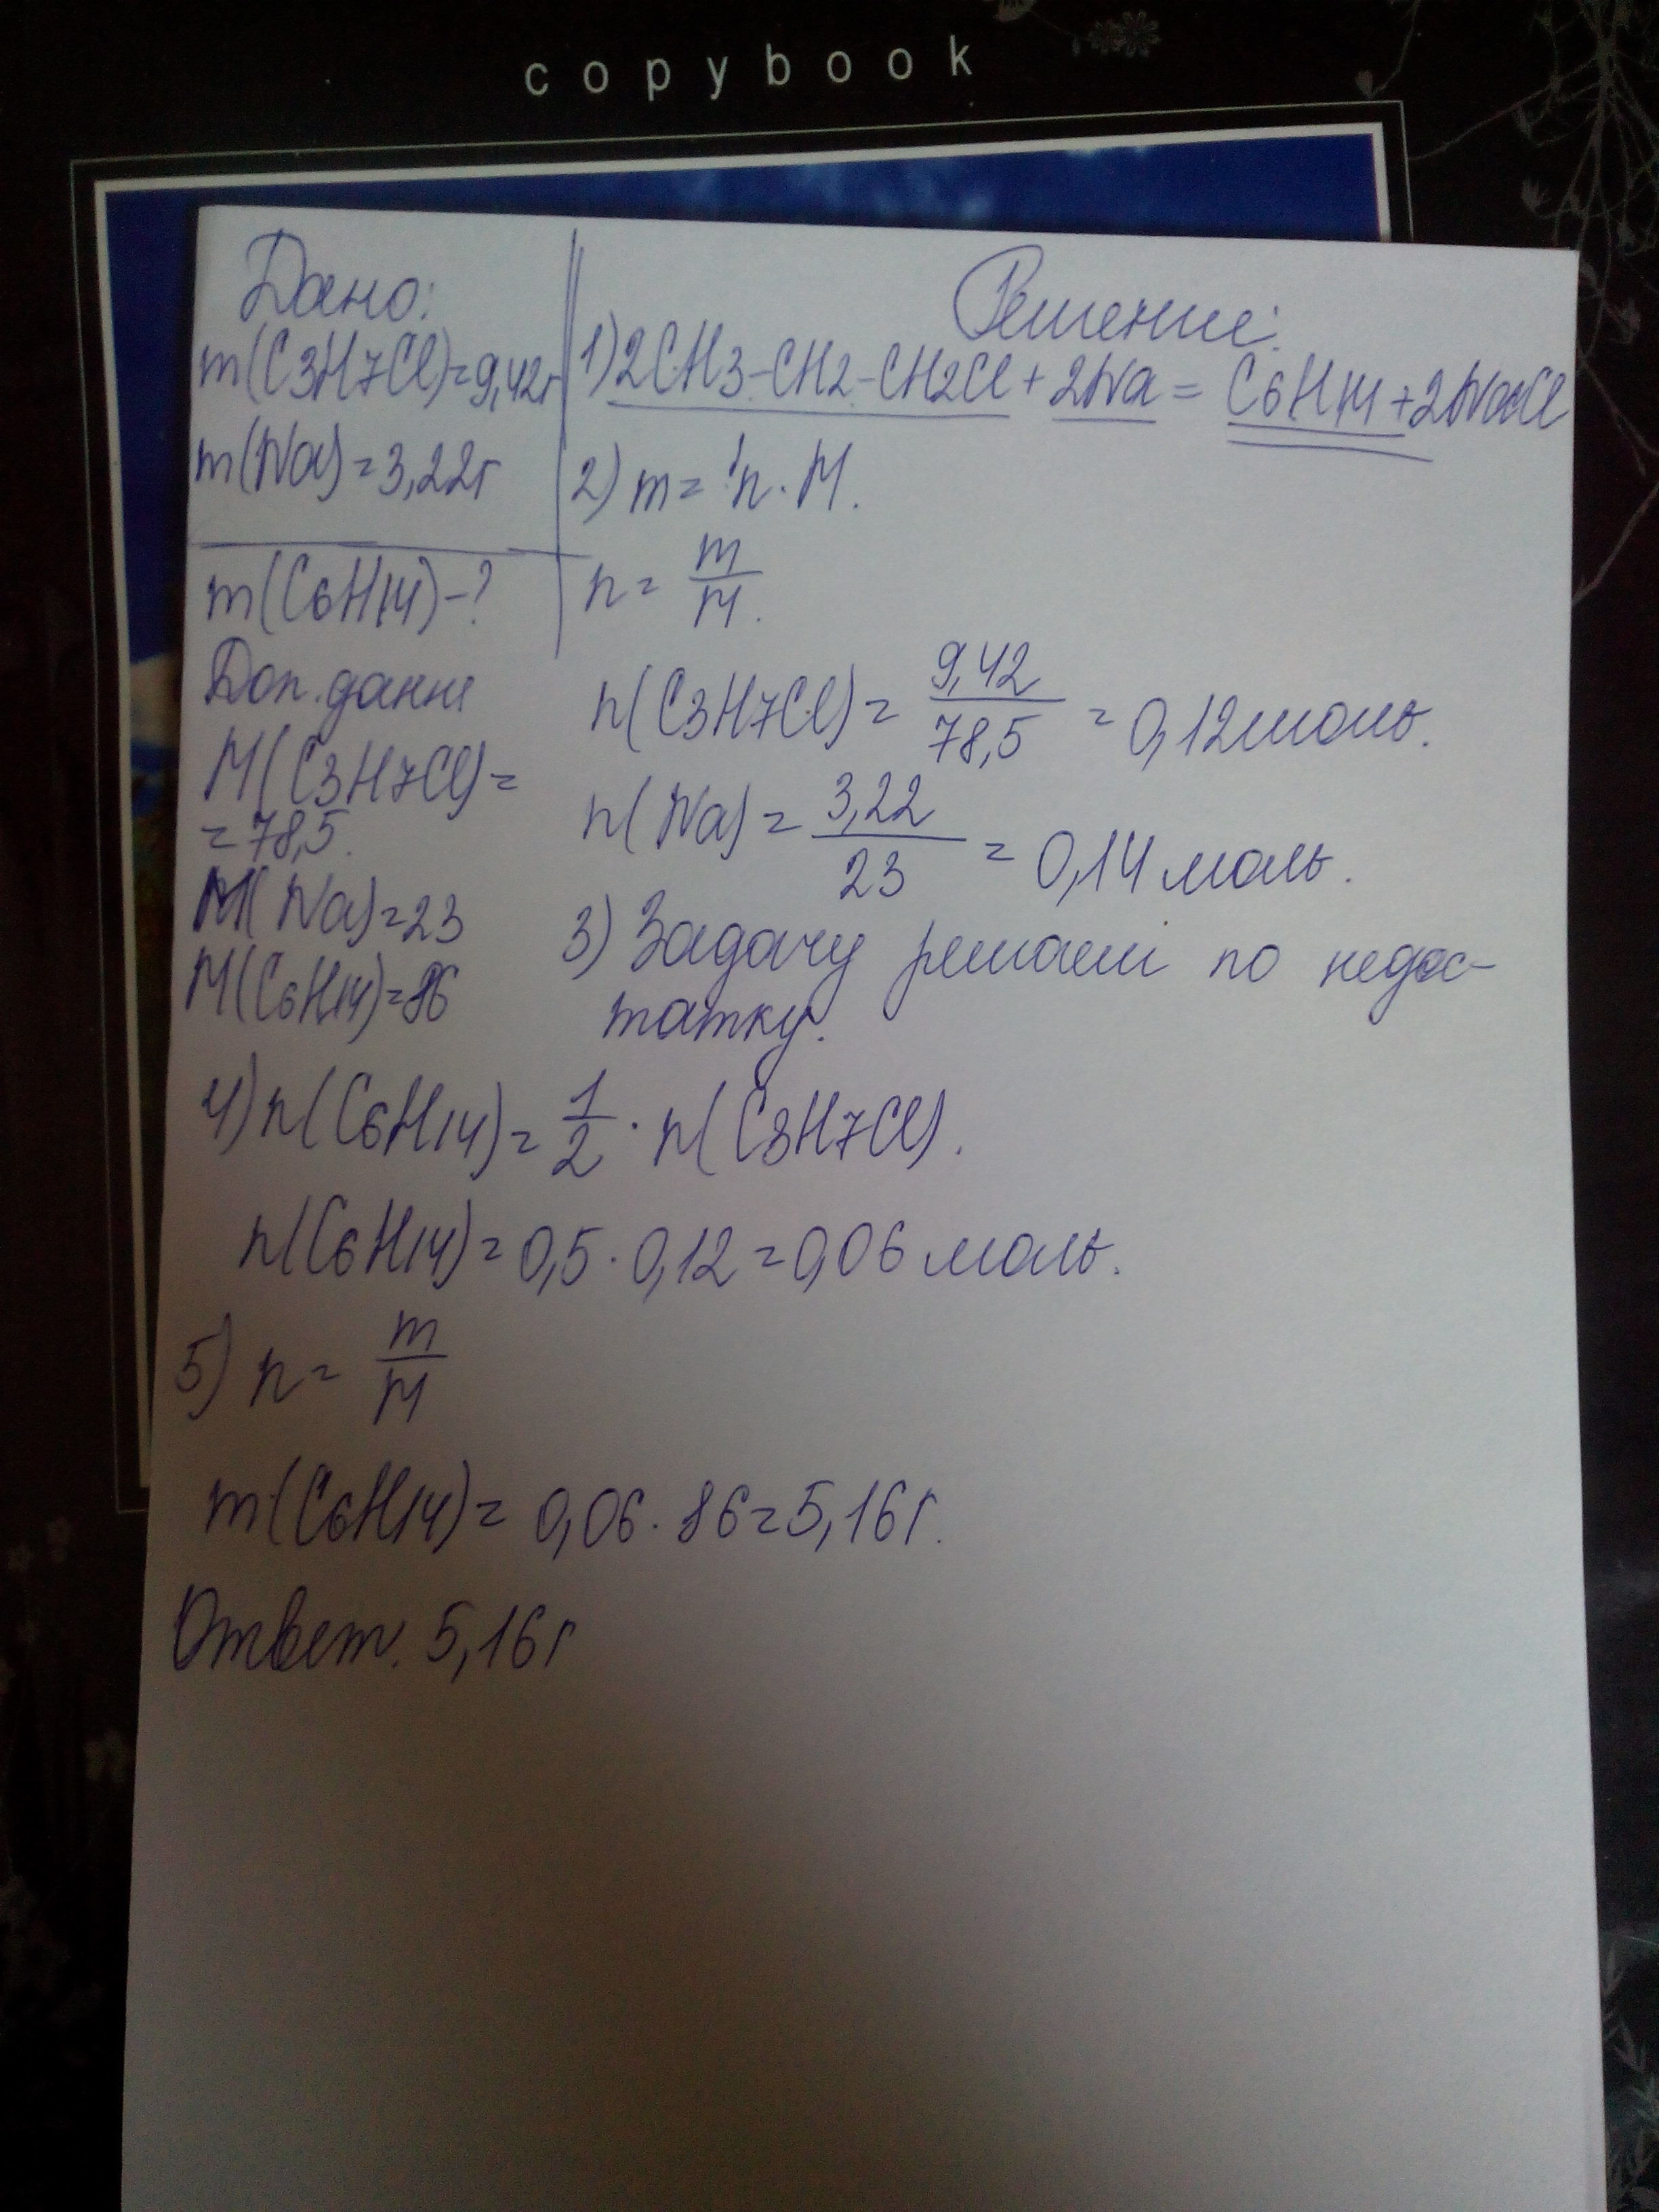 copybook
Дано:
m(C3H7Cl)=9,42г
m(Na)=3,22г
m(C6H14)-?
Доп. данные
M(C3H7Cl)=
=78,5.
M(Na)=23
M(C6H14)=86
Решение:
1) 2CH3-CH2-CH2Cl + 2Na = C6H14 + 2NaCl
2) m = n · M.
n = m/M.
n(C3H7Cl) = 9,42/78,5 = 0,12 моль.
n(Na) = 3,22/23 = 0,14 моль.
3) Задачу решаем по недос-
татку.
4) n(C6H14) = 1/2 · n(C3H7Cl).
n(C6H14) = 0,5 · 0,12 = 0,06 моль.
5) n = m/M
m(C6H14) = 0,06 · 86 = 5,16 г.
Ответ. 5,16 г